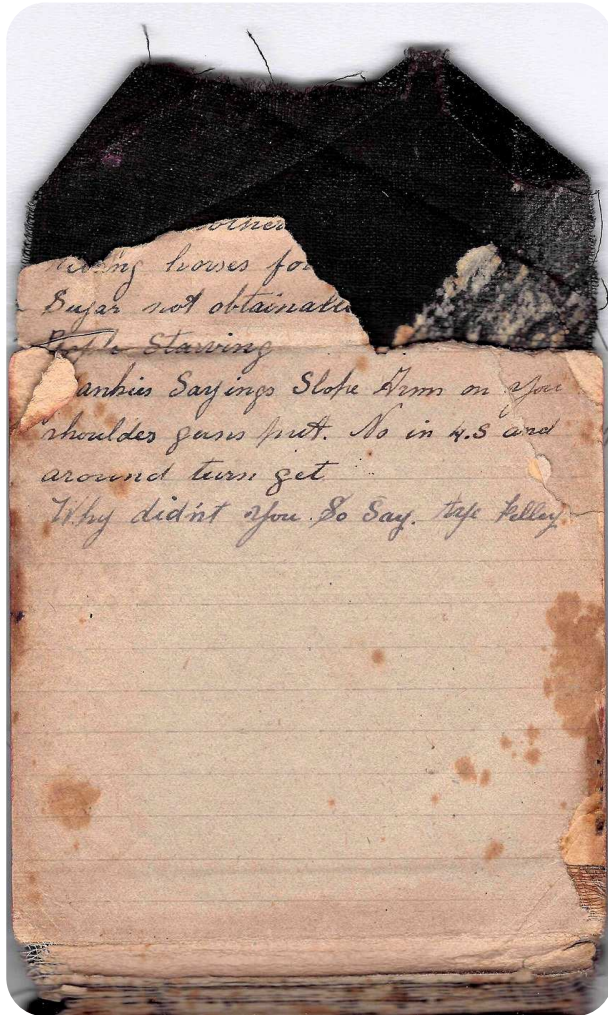 horses for
Sugar not obtainable
People Starving
ankies Sayings Slope Arm on you
shoulder guns put. No in 4.S and
around turn get
Why didn't you So Say.